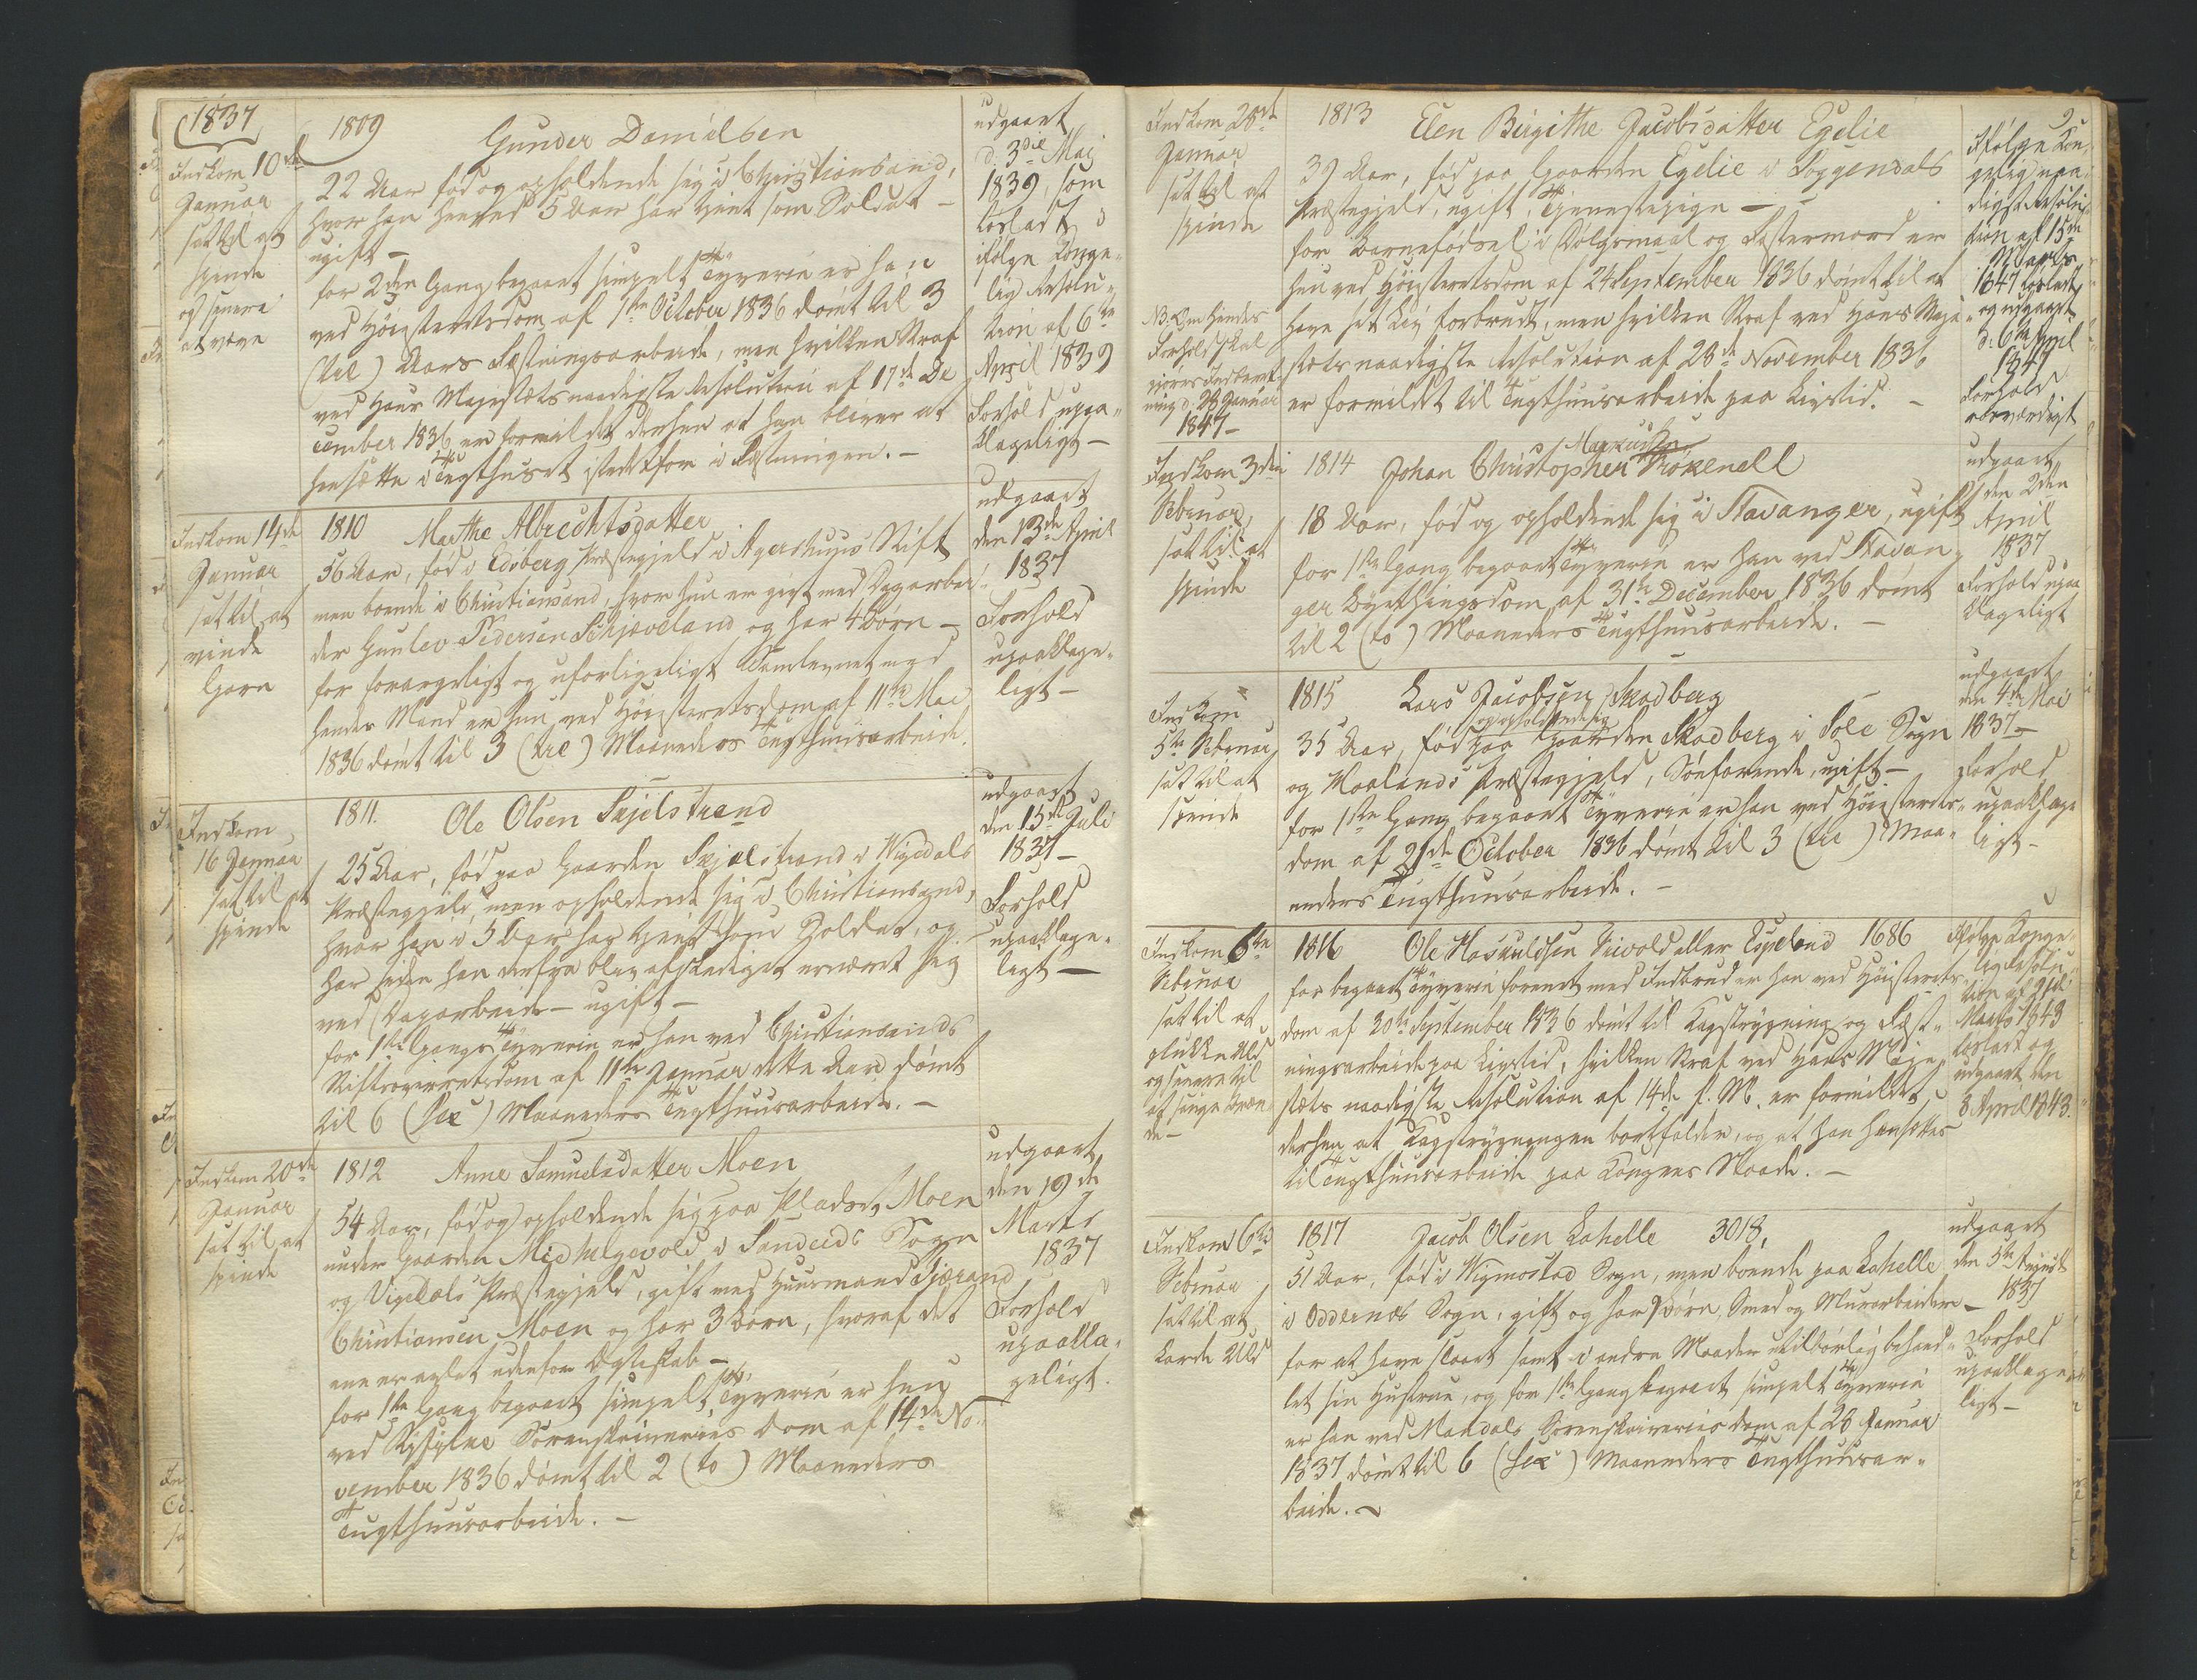 1837
Indkom 10de
Januar
sat til at
spinde
og senere
at væve
1809
Gunder Danielsen
22 Aar fød og opholdende sig i Christiansand,
hvor han henved 5 Aar har tjent som Soldat –
ugift –
for 2den Gang begaaet simpelt Tyverie er han
ved Høiesteretsdom af 1ste October 1836 dømt til 3
(tre) Aars Fæstningsarbeide, men hvilken Straf
ved Hans Majestæts naadigste Resolution af 17de De
cember 1836 er formildet derhen at han bliver at
hensætte i Tugthuset istedetfor i Fæstningen. –
udgaaet
d. 3die Maj
1839, som
løsladt
ifølge Konge-
lig Resolu-
tion af 6te
April 1839
Forhold upaa-
klageligt –
Indkom 14de
Januar
sat til at
vinde
Garn
1810 Marthe Albrechtsdatter
56 Aar, fød i Edsberg Præstegjeld i Agershuus Stift
men boende i Christiansand, hvor hun er gift med Dagarbei-
der Gunlev Pedersen Skjæveland og har 4 Børn –
for forargeligt og uforligeligt Samlevnet med
hendes Mand er hun ved Høiesteretsdom af 11te Mai
1836 dømt til 3 (tre) Maaneders Tugthuusarbeide.
udgaaet
den 13de April
1837
Forhold
upaaklage-
ligt –
Indkom
16 Januar
sat til at
spinde
1811. Ole Olsen Skjelstrand
25 Aar, fød paa Gaarden Skjælstrand i Vigedals
Præstegjeld, men opholdende sig i Christiansand,
hvor han i 5 Aar har tjent som Soldat, og
har siden han derfra blev afskediget ernæret sig
ved Dagarbeide – ugift –
for 1ste Gangs Tyverie er han ved Christiansands
Stiftsoverretsdom af 11te Januar dette Aar dømt
til 6 (sex) Maaneders Tugthuusarbeide. –
udgaaet
den 15de Juli
1837 –
Forhold
upaaklage-
ligt –
Indkom 20de
Januar
sat til at
spinde
1812 Anne Samuelsdatter Moen
54 Aar, fød og opholdende sig paa Pladsen Moen
under Gaarden Midhelgevold i Sandeids Sogn
og Vigedals Præstegjeld, gift med Huusmand Sjærand
Christiansen Moen og har 3 Børn, hvoraf det
ene er avlet udenfor Ægteskab –
for 1ste Gang begaaet simpelt Tyverie er hun
ved Ryfylke Sorenskriveries Dom af 14de No-
vember 1836 dømt til 2 (to) Maaneders
Tugthuusarbeide. –
udgaaet
den 19de
Marts
1837
Forhold
upaakla-
geligt.
2
Indkom 28de
Januar
sat til at
spinde
NB. Om hendes
Forhold skal
gjøres Indberet-
ning d. 28 Januar
1847 –
1813 Elen Birgithe Jacobsdatter Egelie
39 Aar, fød paa Gaarden Egelie i Soggendals
Præstegjeld, ugift, Tjenestepige –
for Barnefødsel i Dølgsmaal og Fostermord er
hun ved Høiesteretsdom af 24 September 1836 dømt til at
have sit Liv forbrudt, men hvilken Straf ved Hans Maje-
stæts naadigste Resolution af 28de November 1836
er formildet til Tugthuusarbeide paa Livstid. –
Ifølge Kon-
gelig naa-
digst Resolu-
tion af 15de
Marts
1847 løsladt
og udgaaet
d. 6te April
1847
Forhold
Indkom 3die
Februar,
sat til at
spinde
Markus
1814 Johan Christopher
18 Aar, fød og opholdende sig i Stavanger, ugift
for 1ste Gang begaaet Tyverie er han ved Stavan-
ger Byethingsdom af 31te December 1836 dømt
til 2 (to) Maaneders Tugthuusarbeide. –
udgaaet
den 2den
April
1837
Forhold upaa
klageligt
Indkom
5te Februar
sat til at
spinde
1815 Lars Jacobsen Skadberg
og opholdende sig
35 Aar, fød paa Gaarden Skadberg i Sole Sogn
og Haalands Præstegjeld, Søefarende, ugift –
for 1ste Gang begaaet Tyverie er han ved Høiesterets-
dom af 21de October 1836 dømt til 3 (tre) Maa-
neders Tugthuusarbeide. –
udgaaet
den 4de Mai
1837 –
Forhold
upaaklage
ligt –
Indkom 6te
Februar
sat til at
plukke Uld
og senere til
at
1816 Ole Haskuldsen Sivold eller Espeland 1686
for begaaet Tyverie forenet med Indbrud er han ved Høiesterets-
dom af 30te September 1836 dømt til Kagstrygning og Fæst-
ningsarbeide paa Livstid, hvilken Straf ved Hans Maje-
stæts naadigste Resolution af 14de f. M. er formildet
derhen at Kagstrygningen bortfalder, og at han hensættes
til Tugthuusarbeide paa Kongens Naade. –
Ifølge Konge-
lig Resolu-
tion af 21de
Marts 1843
løsladt og
udgaaet den
8 April 1843.
Indkom 6te
Februar
sat til at
karde Uld
1817 Jacob Olsen Lahelle 3018.
51 Aar, fød i Vigmostad Sogn, men boende paa Lahelle
i Oddernæs Sogn, gift og har 7 Børn, Smed og Murarbeider –
for at have slaaet samt i andre Maader utilbørlig behand-
let sin Hustrue, og for 1ste Gang begaaet simpelt Tyverie
er han ved Mandals Sorenskriveries Dom af 28 Januar
1837 dømt til 6 (sex) Maaneders Tugthuusar-
beide. –
udgaaet
den 5te August
1837
Forhold
upaaklage-
ligt –